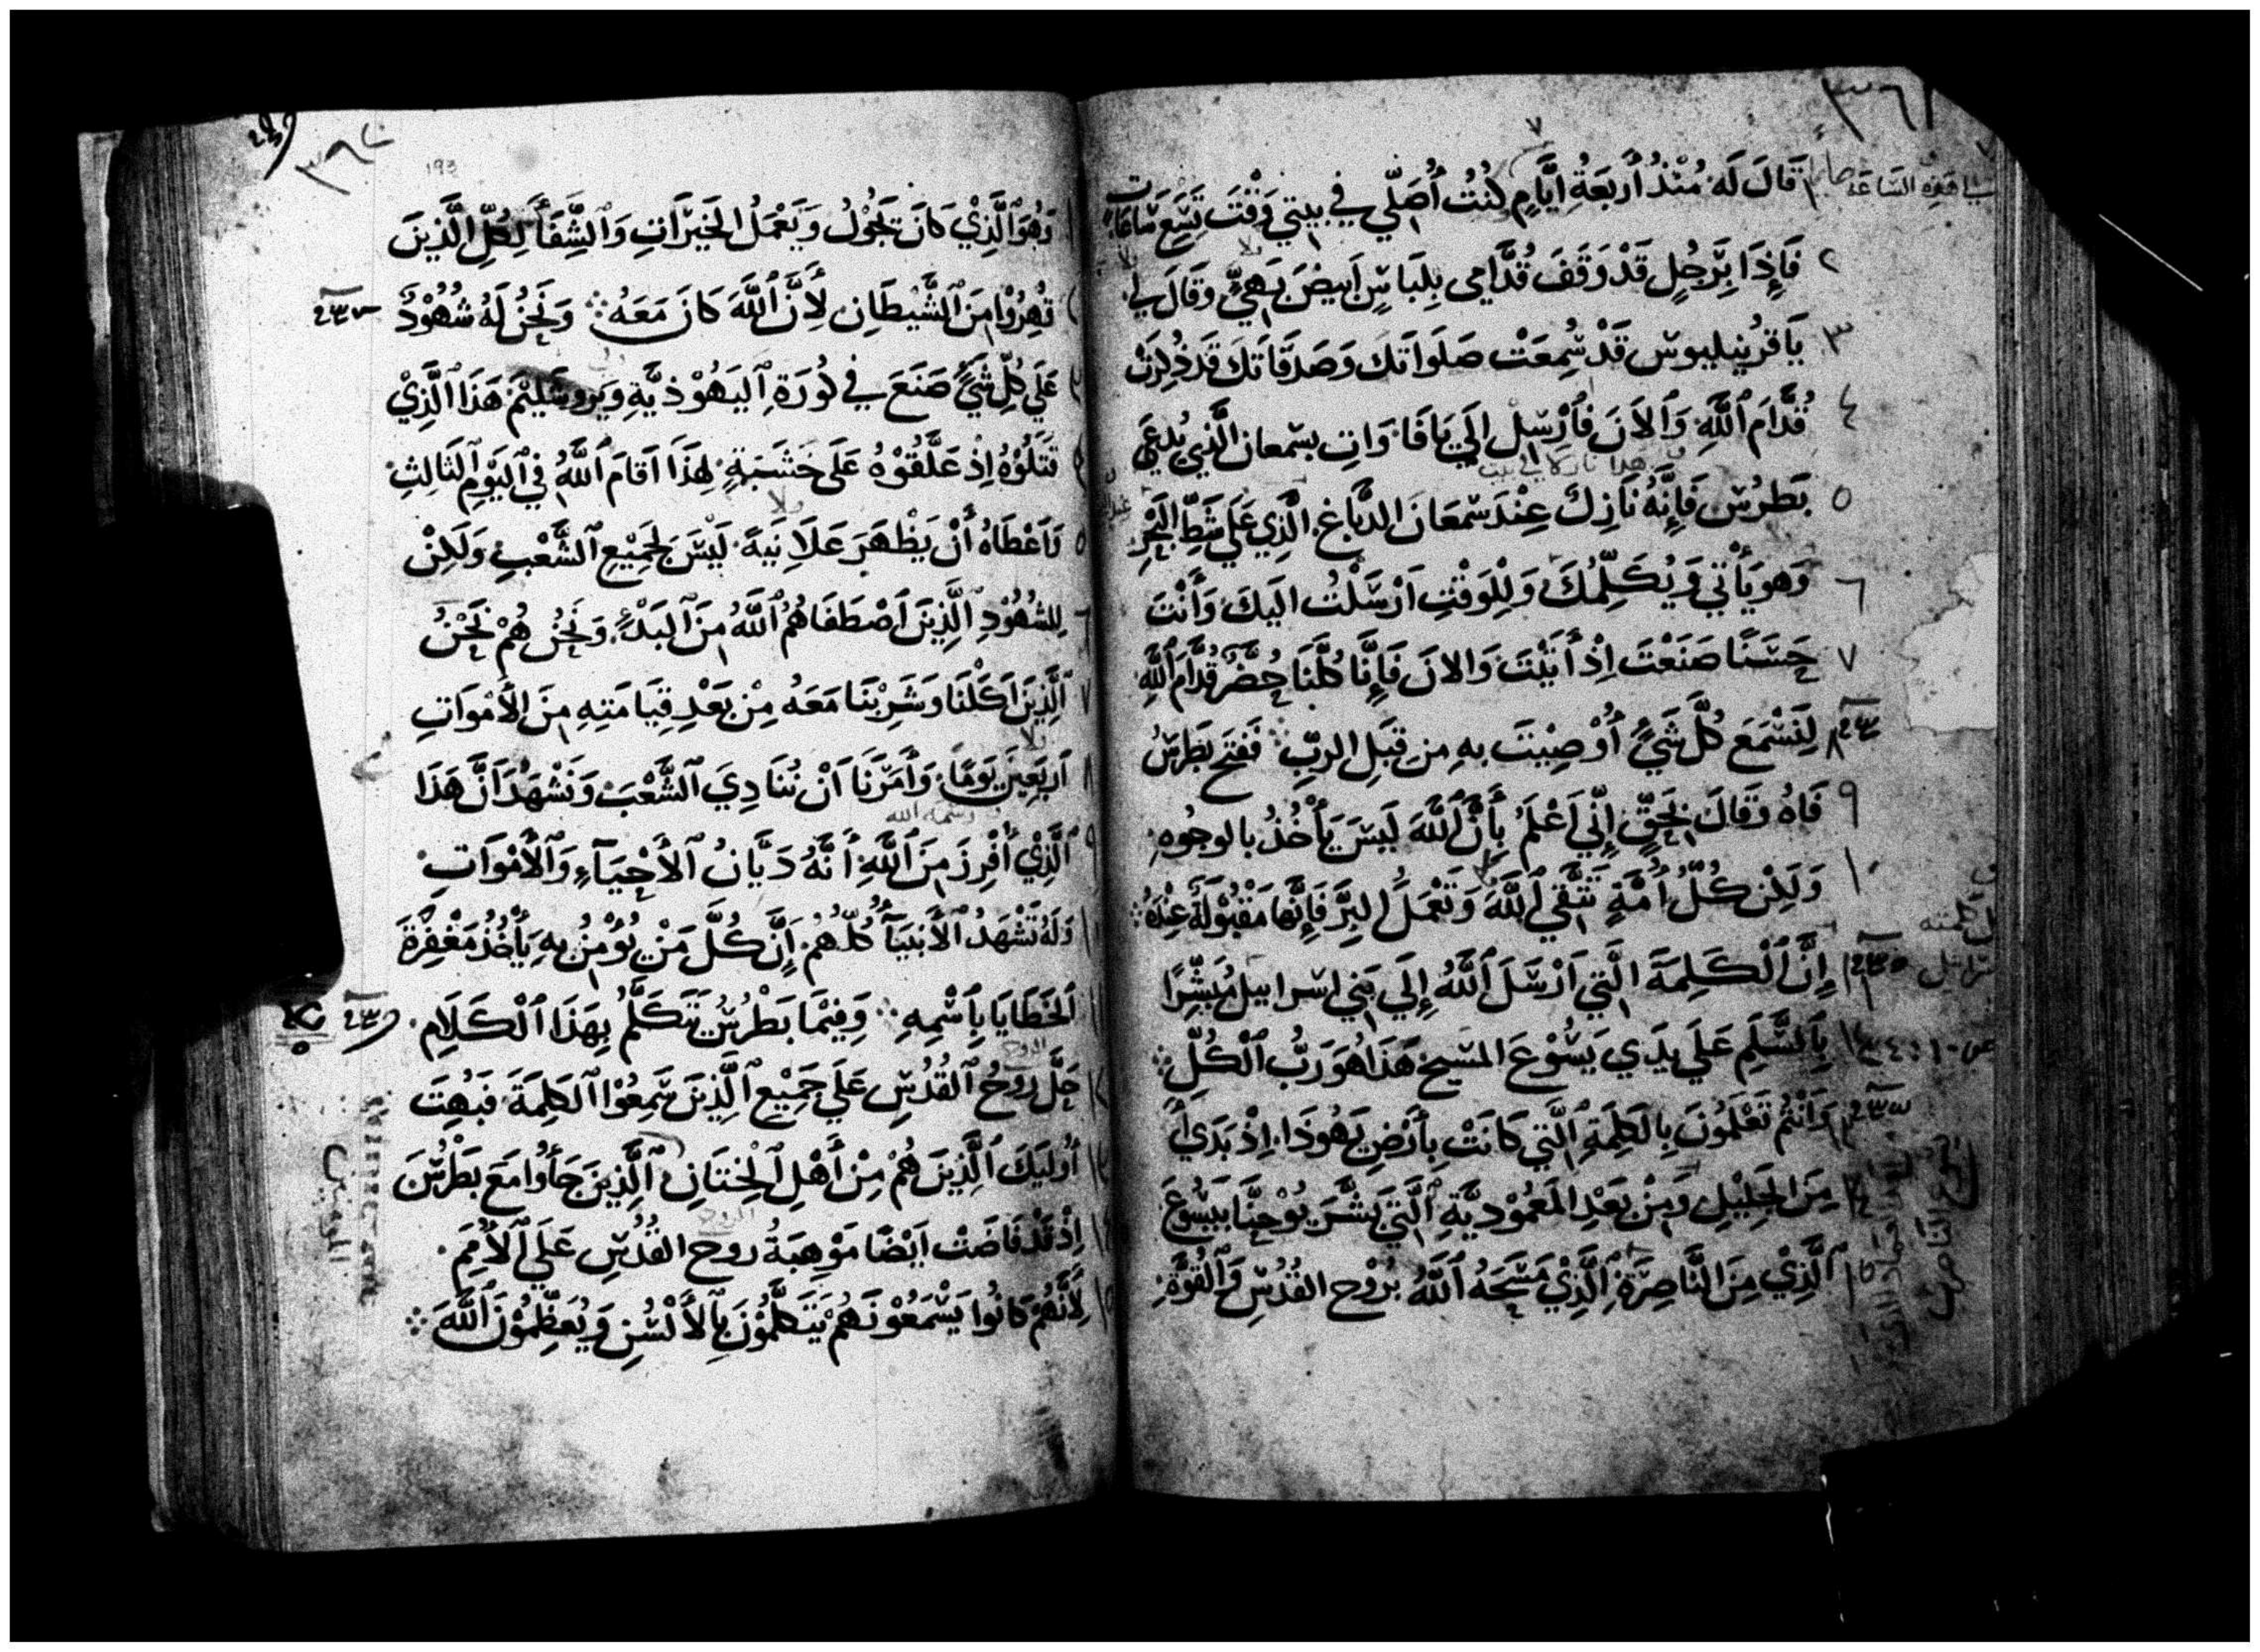 ٣٦١
١ قَالَ لَه مُنْذُ أَرْبَعَةُ أيَّامٍ كنْتُ أُصَلِّي في بيتي وَقْتَ تِسَع سَاعَات
٢ فَإِذَا بِرَجُلٍ قَدْ وَقَفَ قُدَّامى بِلِبَاسٍ اَبيضَ بَهيٍّ وقَالَ لى
٣ يَا قرنيليوس قَدْ سُمِعَتْ صَلَوَاتَكَ وَصَدَقَاتكَ قَد ذُكِرَتْ
٤ قُدَّامَ ٱللَّهِ وَٱلآنَ فَأَرْسِل إِلَي يَافَا وَاتِ بسمعان الَّذي يُدعَي
٥ بَطرُس فَإِنَّهُ نَازِلٌ عِنْدَ سَمعَانَ الدبَّاغ الَّذِي عَلَي شَطِّ البَحْرِ
٦ وَهو يَأْتي وَيُكَلِّمُكَ وَلِلْوَقْتِ اَرْسَلْتُ اليكَ وَأَنْتَ
٧ حَسَنًا صَنَعْتَ اِذْ أَتَيْتَ وَالانَ فَإِنَّا كلَّنَا حُضَّرٌ قُدَّامَ ٱللَّهِ
٨ لِنَسْمَعَ كُلَّ شَيءٍ أُوْصِيْتَ بهِ مِن قِبَلِ الربِّ فَفتح بَطرسُ
٩ فَاهُ وَقَالَ بِحَقٍّ إِنِّي اَعْلَمُ بِأَنَّ ٱللَّهَ لَيسَ يَأْخُذُ بالوجُوهِ
١٠ وَلَكِن كُلُّ أُمَّةٍ تَتَّقي ٱللَّهَ وَتَعْمَلُ البِرَّ فَإِنَّها مَقْبُولَةٌ عِندَهُ
١١ إِنَّ ٱلْكَلِمَةَ الَّتي اَرْسَلَ ٱللَّهُ إِلَي بَني اسراييل مُبَشِّرًا
١٢ بِٱلسَّلَمِ عَلَي يدَي يَسُوْعَ المسيح هَذَا هُوَ رَبُّ ٱلْكُلِّ
١٣ وَانْتُم تَعْلَمُونَ بِالكَلِمَةِ ٱلَّتي كَانَتْ بِأَرْضِ يَهُوذَا اِذْ بَدَي
١٤ مِنَ الجَلِيْلِ وَمِنْ بَعْدِ المَعْمُوْدِيَّةِ ٱلَّتي بَشَّرَ يُوْحنَّا بيَسُوْعَ
١٥ ٱلَّذِيْ مِنَ النَّاصِرَةِ ٱلَّذِيْ مَسَحَهُ ٱللَّهُ بِرُوْح القُدُسِ وَٱلْقُوَّةِ
193
١ وَهُوَ ٱلَّذِيْ كَانَ يَجُوْلُ وَيَعْمَلُ الخَيْرَاتِ وَٱلشِّفَأَ لِكُلِّ الَّذِينَ
٢ قُهِرُوْا مِنَ ٱلشَّيْطَانِ لِأَنَّ ٱللَّهَ كَانَ مَعَهُ وَنَحْنُ لَهُ شُهُوْدٌ
٣ عَلَي كُلِّ شَيءٍ صَنَعَ في كُورَةِ ٱليَهُوْذِيَّةِ وَيَروشَلِيْمَ هَذَا ٱلَّذِيْ
٤ قَتَلُوْهُ اِذْ عَلَّقُوْهُ عَلَى خَشَبَةٍ لِهَذَا اَقَامَ ٱللَّهُ فِي ٱليَوْمِ ٱلثَالِثِ
٥ وَاَعْطَاهُ أَنْ يَظْهَرَ عَلَانِيَةً لَيْسَ لِجَمِيْعِ ٱلشَّعْبِ وَلَكِنْ
٦ لِلشُهُوْدِ ٱلَّذِيْنَ ٱصْطَفَاهُمُ ٱللَّهُ مِنَ ٱلبَدْءِ وَنَحْنُ هُمْ نَحْنُ
٧ ٱلَّذِيْنَ اَكَلْنَا وَشَرِبْنَا مَعَهُ مِنْ بَعْدِ قِيَامَتِهِ مِنَ الأَمْوَاتِ
٨ اَربَعِيْنَ يَومًا وَأَمَرَنَا اَنْ نُنَادِيَ ٱلشَّعْبَ وَنَشْهَدَ اَنَّ هَذَا
٩ ٱلَّذِيْ أُفْرِزَ مِنَ ٱللَّهِ أَنَّهُ دَيَّانُ ٱلأَحْيَآءِ وَٱلأَمْوَاتِ
١٠ وَلَهُ تَشْهَدُ ٱلأَنبيَآءُ كُلُّهُمْ إِنَّ كُلَّ مَنْ يُؤْمِنُ بِهِ يَأْخُذُ مَغْفِرَةَ
١١ ٱلخَطَايَا بِٱسْمِهِ وَفِيْمَا بَطْرُسُ يَتَكَلَّمُ بِهَذَا ٱلْكَلَامِ
١٢ حَلَّ رُوْحُ ٱلقُدُسِ عَلَي جَمِيْعِ ٱلَّذِينَ سَمِعُوْا ٱلكَلِمَةَ فَبُهِتَ
١٣ أُوليَكَ ٱلَّذِينَ هُمْ مِنْ أَهْلِ ٱلْخِتَانِ ٱلَّذِينَ جَآوُا مَعَ بَطْرُسَ
١٤ اِذْ قَدْ فَاضَتْ اَيْضًا مَوْهِبَةُ روح القُدُسِ عَلَي ٱلأُمَمِ
١٥ لِأَنَّهُمْ كَانُوا يَسْمَعُوْنَهُمْ يَتَكَلَّمُوْنَ بِٱلأَلْسُنِ وَيُعَظِّمُوْنَ ٱللَّهَ